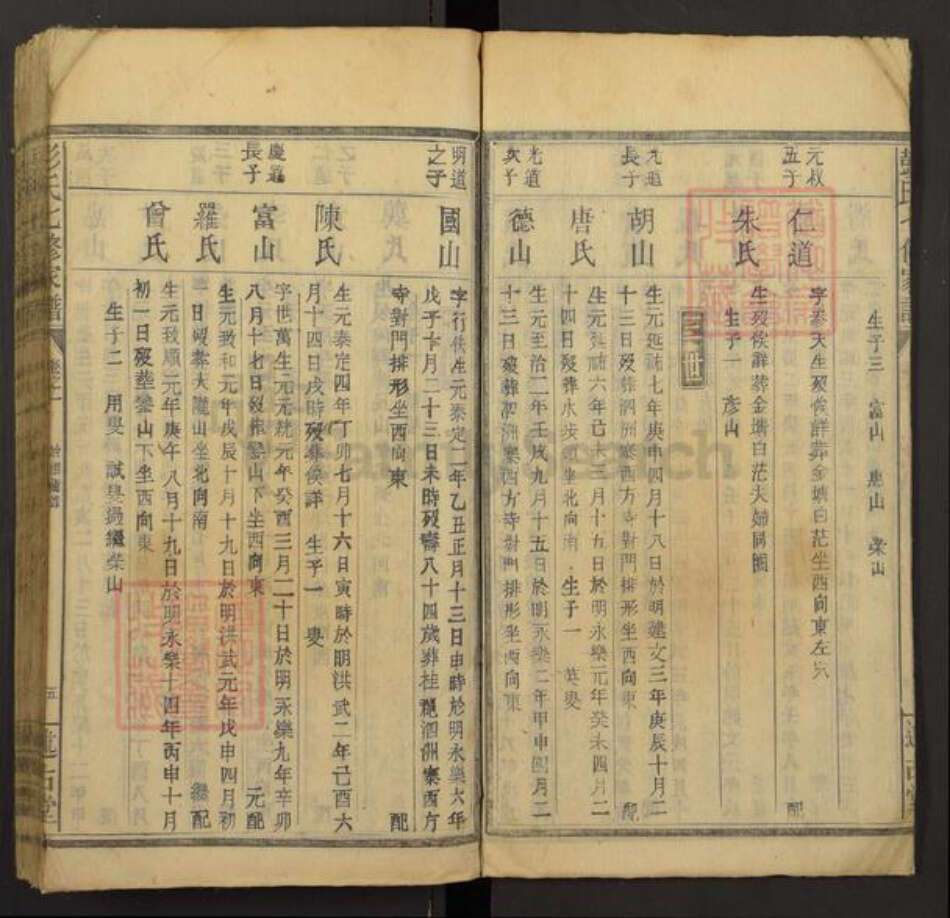 生子三 富山 惠山 榮山
元叔五子
仁道
字泰天生歿俟詳葬金塘白茫坐西向東左穴
配
朱氏
生歿俟詳葬金塘白茫夫婦同圍
生子一 彥山
三世
九道長子
胡山
生元延祐七年庚申四月十八日於明建文三年庚辰十月二
十三日歿葬泗洲寨西方寺對門排形坐西向東
配
唐氏
生元延祐六年己未三月十五日於明永樂元年癸未四月二
十四日歿葬水安領坐北向南 生子一 英叟
光道次子
德山
生元至治二年壬戌九月十五日於明永樂二年甲申四月二
十三日歿葬泗洲寨西方寺對門排形坐西向東
明道之子
國山
字行佚生元泰定二年乙丑正月十三日申時於明永樂六年
戊子十月二十三日未時歿壽八十四歲葬桂麗泗洲寨西方
寺對門排形坐西向東
配
陳氏
生元泰定四年丁卯七月十六日寅時於明洪武二年己酉六
月十四日戌時歿葬俟詳 生子一 叟
慶道長子
富山
字世萬生元元統元年癸酉三月二十日於明永樂九年辛卯
八月十七日歿葬鑾山下坐西向東
元配
羅氏
生元致和元年戊辰十月十九日於明洪武元年戊申四月初
日歿葬大隴山坐北向南
繼配
曾氏
生元致順元年庚午八月十九日於明永樂十四年丙申十月
初一日歿葬鑾山下坐西向東
生子二 用叟 誠叟過繼榮山
彭氏七修家譜
五